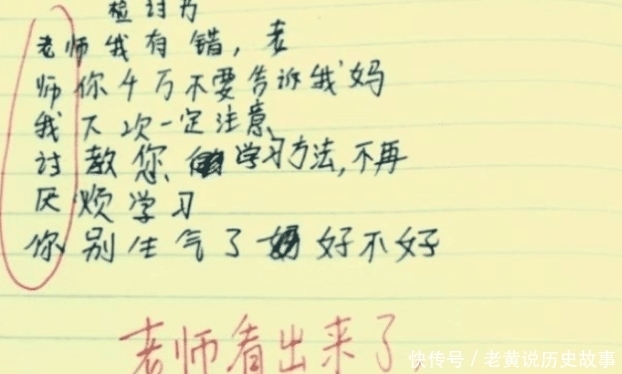 检讨书
老师我有错,老
师你千万不要告诉我妈
我下次一定注意
讨教您、学习方法,不再
厌烦学习
你别生气了 好不好
老师看出来了
快传号/老黄说历史故事